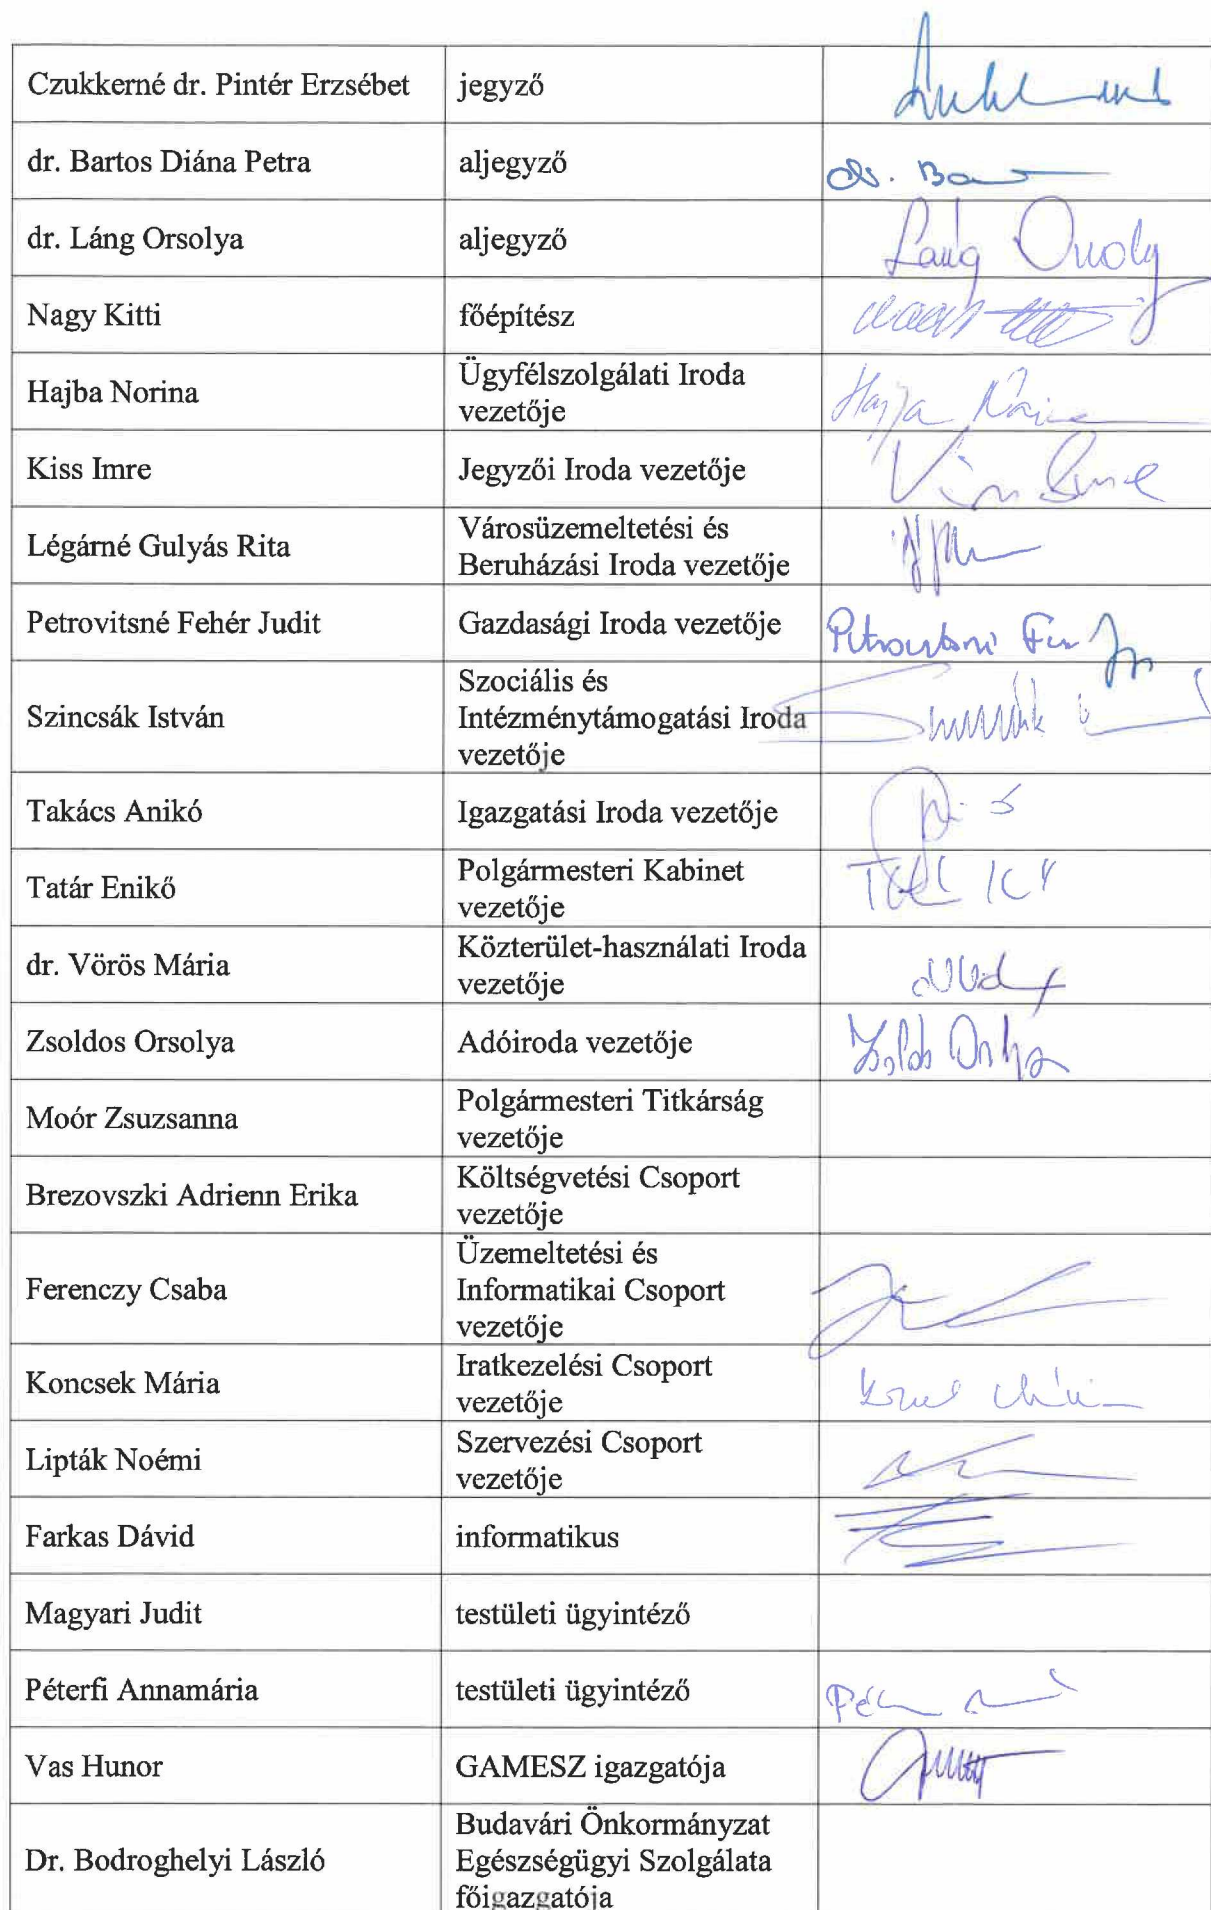 Czukkerné dr. Pintér Erzsébet
jegyző
dr. Bartos Diána Petra
aljegyző
dr. Ba
dr. Láng Orsolya
aljegyző
Láng Orsolya
Nagy Kitti
főépítész
Hajba Norina
Ügyfélszolgálati Iroda
vezetője
Hajba Norina
Kiss Imre
Jegyzői Iroda vezetője
Légárné Gulyás Rita
Városüzemeltetési és
Beruházási Iroda vezetője
Petrovitsné Fehér Judit
Gazdasági Iroda vezetője
Petrovitsné
Szincsák István
Szociális és
Intézménytámogatási Iroda
vezetője
Takács Anikó
Igazgatási Iroda vezetője
Tatár Enikő
Polgármesteri Kabinet
vezetője
dr. Vörös Mária
Közterület-használati Iroda
vezetője
Zsoldos Orsolya
Adóiroda vezetője
Moór Zsuzsanna
Polgármesteri Titkárság
vezetője
Brezovszki Adrienn Erika
Költségvetési Csoport
vezetője
Ferenczy Csaba
Üzemeltetési és
Informatikai Csoport
vezetője
Koncsek Mária
Iratkezelési Csoport
vezetője
Lipták Noémi
Szervezési Csoport
vezetője
Farkas Dávid
informatikus
Magyari Judit
testületi ügyintéző
Péterfi Annamária
testületi ügyintéző
Vas Hunor
GAMESZ igazgatója
Dr. Bodroghelyi László
Budavári Önkormányzat
Egészségügyi Szolgálata
főigazgatója